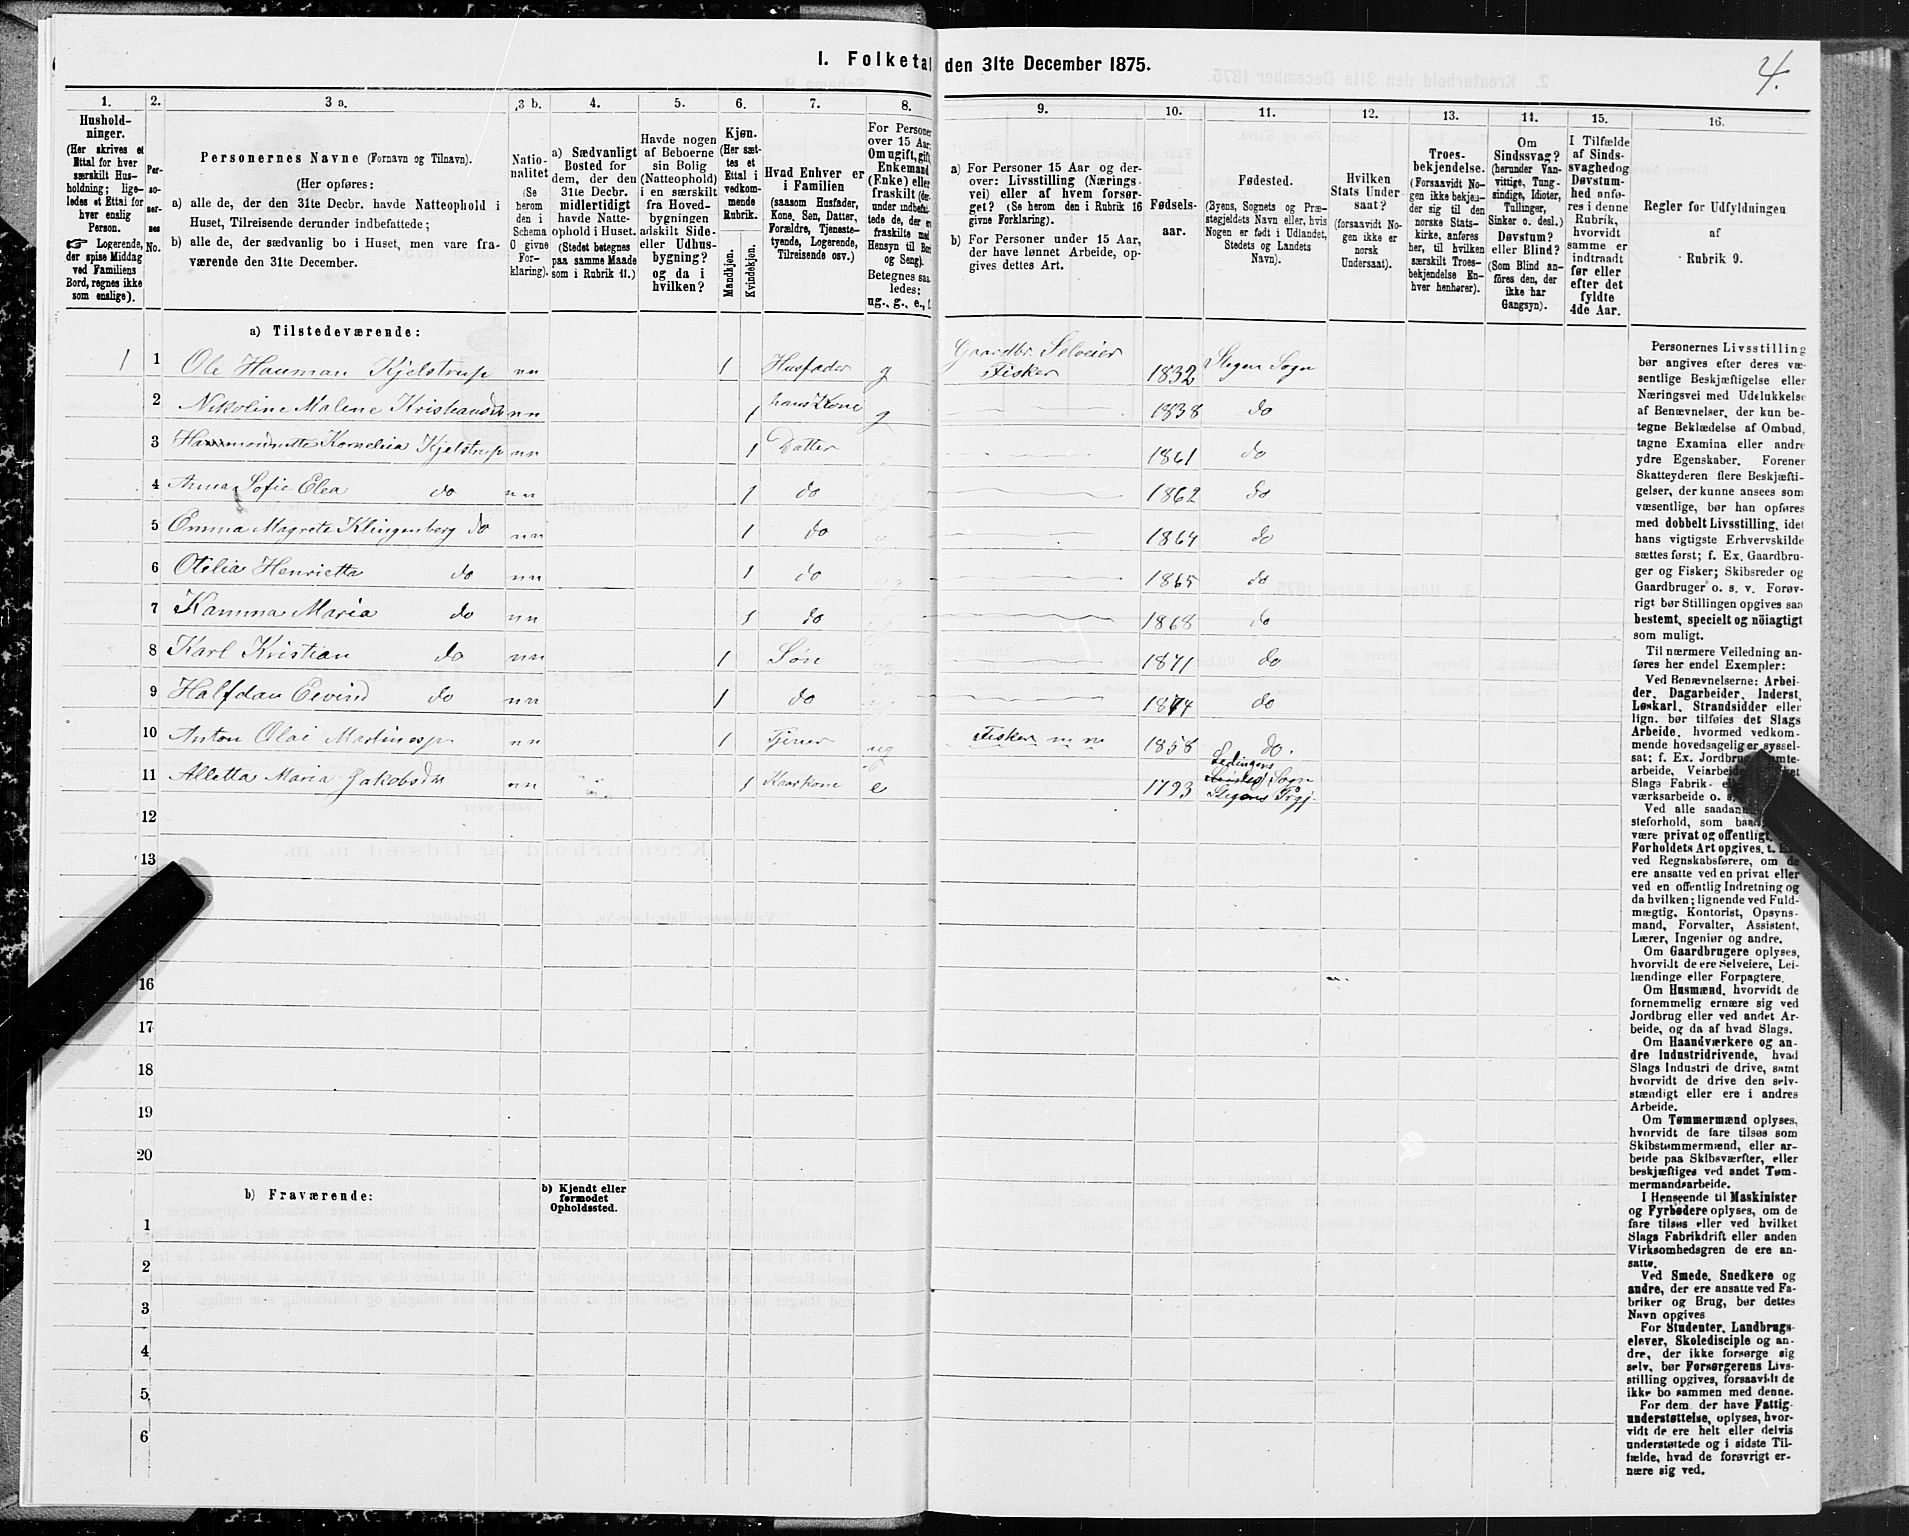 I. Folketal den 31te December 1875.
4.
1.
Hushold-
ninger.
(Her skrives et
Ettal for hver
særskilt Hus-
holdning; lige-
ledes et Ettal for
hver enslig
Person.
☞ Logerende,
der spise Middag
ved Familiens
Bord, regnes ikke
som enslige).
2.
Per-
so-
ner-
nes
No.
3 a.
Personernes Navne (Fornavn og Tilnavn).
(Her opføres:
a) alle de, der den 31te Decbr. havde Natteophold i
Huset, Tilreisende derunder indbefattede;
b) alle de, der sædvanlig bo i Huset, men vare fra-
værende den 31te December.
3 b.
Natio-
nalitet
(Se
herom
den i
Schema
O givne
For-
klaring).
4.
a) Sædvanligt
Bosted for
dem, der den
31te Decbr.
midlertidigt
havde Natte-
ophold i Huset.
(Stedet betegnes
paa samme Maade
som i Rubrik 11.)
5.
Havde nogen
af Beboerne
sin Bolig
(Natteophold)
i en særskilt
fra Hoved-
bygningen
adskilt Side-
eller Udhus-
bygning?
og da i
hvilken?
6.
Kjøn.
(Her sæt-
tes et
Ettal i
vedkom-
mende
Rubrik.
Mandkjøn.
Kvindekjøn.
7.
Hvad Enhver er
i Familien
(saasom Husfader,
Kone, Søn, Datter,
Forældre, Tjeneste-
tyende, Logerende,
Tilreisende osv.)
8.
For Personer
over 15 Aar:
Om ugift, gift,
Enkemand
(Enke) eller
fraskilt
og Seng).
Betegnes saa-
ledes:
ug., g., e., f.
9.
a) For Personer 15 Aar og der-
over: Livsstilling (Nærings-
vei) eller af hvem forsør-
get? (Se herom den i Rubrik 16
givne Forklaring).
b) For Personer under 15 Aar,
der have lønnet Arbeide, op-
gives dettes Art.
10.
Fødsels-
aar.
11.
Fødested.
(Byens, Sognets og Præ-
stegjeldets Navn eller, hvis
Nogen er født i Udlandet,
Stedets og Landets
Navn).
12.
Hvilken
Stats Under-
saat?
(forsaavidt No-
gen ikke er
norsk
Undersaat).
13.
Troes-
bekjendelse.
(Forsaavidt No-
gen ikke bekjen-
der sig til den
norske Stats-
kirke, anføres
her, til hvilken
særskilt Troes-
bekjendelse En-
hver henhører).
14.
Om
Sindssvag?
(herunder Van-
vittige, Tung-
sindige, Idioter,
Tullinger,
Sinker o. desl.)
Døvstum?
eller Blind?
(Som Blind an-
føres den, der
ikke har
Gangsyn).
15.
I Tilfælde
af Sinds-
svaghed og
Døvstum-
hed anfø-
res i denne
Rubrik,
hvorvidt
samme er
indtraadt
før eller
efter det
fyldte
4de Aar.
16.
Regler for Udfyldningen
af
Rubrik 9.
a) Tilstedeværende:
1 1 Ole Hauman Kjelstrup nn 1 Husfader g Gaardbr. Selveier Fisker 1832 Stegen Sogn
2 Nikoline Malene Kristiansdtr nn 1 hans Kone g 1838 do
3 Kornelia Kjelstrup nn 1 Datter 1861 do
4 Anna Sofie Elea do nn 1 do 1862 do
5 Emma Magrete Klingenberg do nn 1 do 1864 do
6 Otelia Henrietta do nn 1 do 1865 do
7 Kamma Maria do nn 1 do 1868 do
8 Karl Kristian do nn 1 Søn 1871 do
9 Halfdan Eivind do nn 1 do 1874 do
10 Anton Olai Martinesen nn 1 Tjener ug Fisker m m 1858 do.
11 Alletta Maria Jakobsdtr nn 1 Kaarkone e 1793 Ledingens Sogn
Stegens Prgj.
12
13
16
17
18
19
20
b) Fraværende:
b) Kjendt eller
formodet
Opholdssted.
1
2
3
4
5
6
Personernes Livsstilling
bør angives efter deres væ-
sentlige Beskjæftigelse eller
Næringsvei med Udelukkelse
af Benævnelser, der kun be-
tegne Beklædelse af Ombud,
tagne Examina eller andre
ydre Egenskaber. Forener
Skatteyderen flere Beskjæfti-
gelser, der kunne ansees som
væsentlige, bør han opføres
med dobbelt Livsstilling, idet
hans vigtigste Erhvervskilde
sættes først; f. Ex. Gaardbru-
ger og Fisker; Skibsreder og
Gaardbruger o. s. v. Forøv-
rigt bør Stillingen opgives saa
bestemt, specielt og nöiagtigt
som muligt.
Til nærmere Veiledning an-
føres her endel Exempler:
Ved Benævnelserne: Arbei-
der, Dagarbeider, Inderst,
Løskarl, Strandsidder eller
lign. bør tilføies det Slags
Arbeide, hvormed vedkom-
mende hovedsagelig er syssel-
sat; f. Ex. Jordbrug
arbeide, Veiarbeide
Slags Fabrik-
værksarbeide o. s.
Ved alle saadanne
steforhold, som baade
være privat og offentligt,
Forholdets Art opgives, t. Ex.
ved Regnskabsførere, om de
ere ansatte ved en privat eller
ved en offentlig Indretning og
da hvilken; lignende ved Fuld-
mægtig, Kontorist, Opsyns-
mand, Forvalter, Assistent,
Lærer, Ingeniør og andre.
Om Gaardbrugere oplyses,
hvorvidt de ere Selveiere, Lei-
lændinge eller Forpagtere.
Om Husmænd, hvorvidt de
fornemmelig ernære sig ved
Jordbrug eller ved andet Ar-
beide, og da af hvad Slags.
Om Haandværkere og an-
dre Industridrivende, hvad
Slags Industri de drive, samt
hvorvidt de drive den selv-
stændigt eller ere i andres
Arbeide.
Om Tømmermænd oplyses,
hvorvidt de fare tilsøs som
Skibstømmermænd, eller ar-
beide paa Skibsværfter, eller
beskjæftiges ved andet Tøm-
mermandsarbeide.
I Henseende til Maskinister
og Fyrbødere oplyses, om de
fare tilsøs eller ved hvilket
Slags Fabrikdrift eller anden
Virksomhedsgren de ere an-
satte.
Ved Smede, Snedkere og
andre, der ere ansatte ved Fa-
briker og Brug, bør dettes
Navn opgives
For Studenter, Landbrugs-
elever, Skoledisciple og an-
dre, der ikke forsørge sig
selv, bør Forsørgerens Livs-
stilling opgives, forsaavidt de
ikke bo sammen med denne.
For dem, der have Fattig-
understøttelse, oplyses, hvor-
vidt de ere helt eller delvis
understøttede og i sidste Til-
fælde, hvad de forøvrigt er-
nære sig ved.